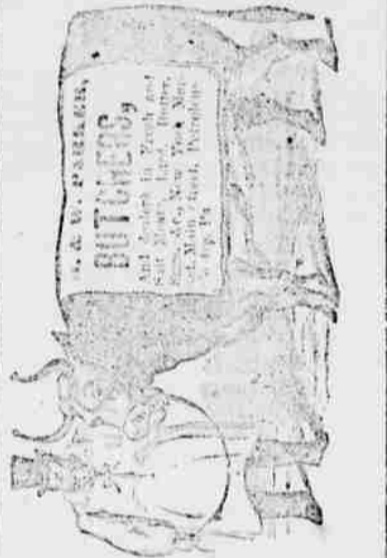 & W. PARKER,
BUTCHERS,
And dealers in Fresh and
Salt Meats, Lard, Butter,
New York
Main Street, Petroleum
Pa